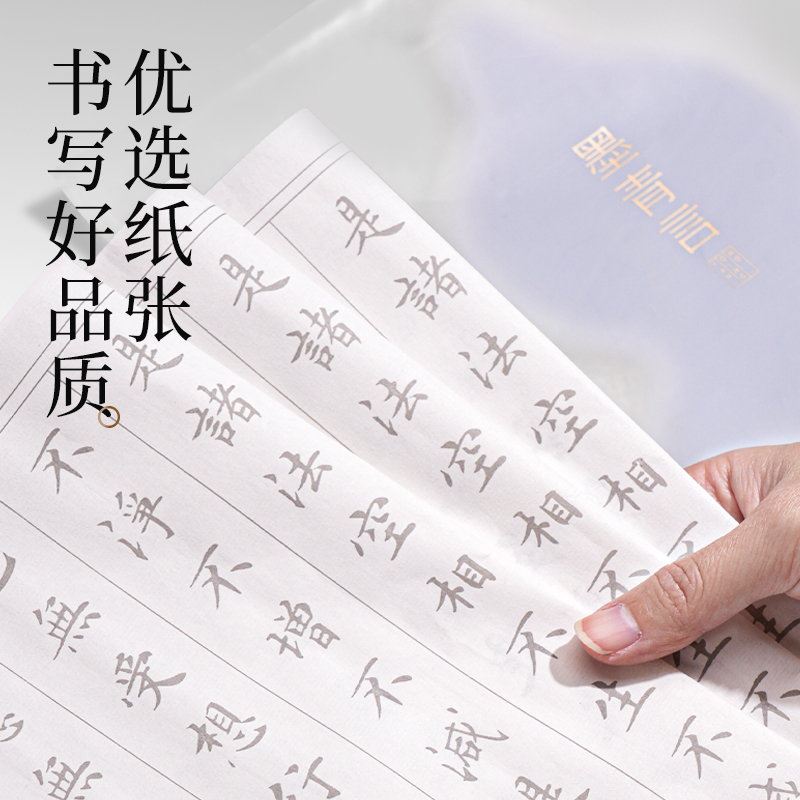 优选纸张
书写好品质
墨青言
是諸法空相不生
是諸法空相不生不
是諸法空相不生不
不淨不增不減是
無受想行
無